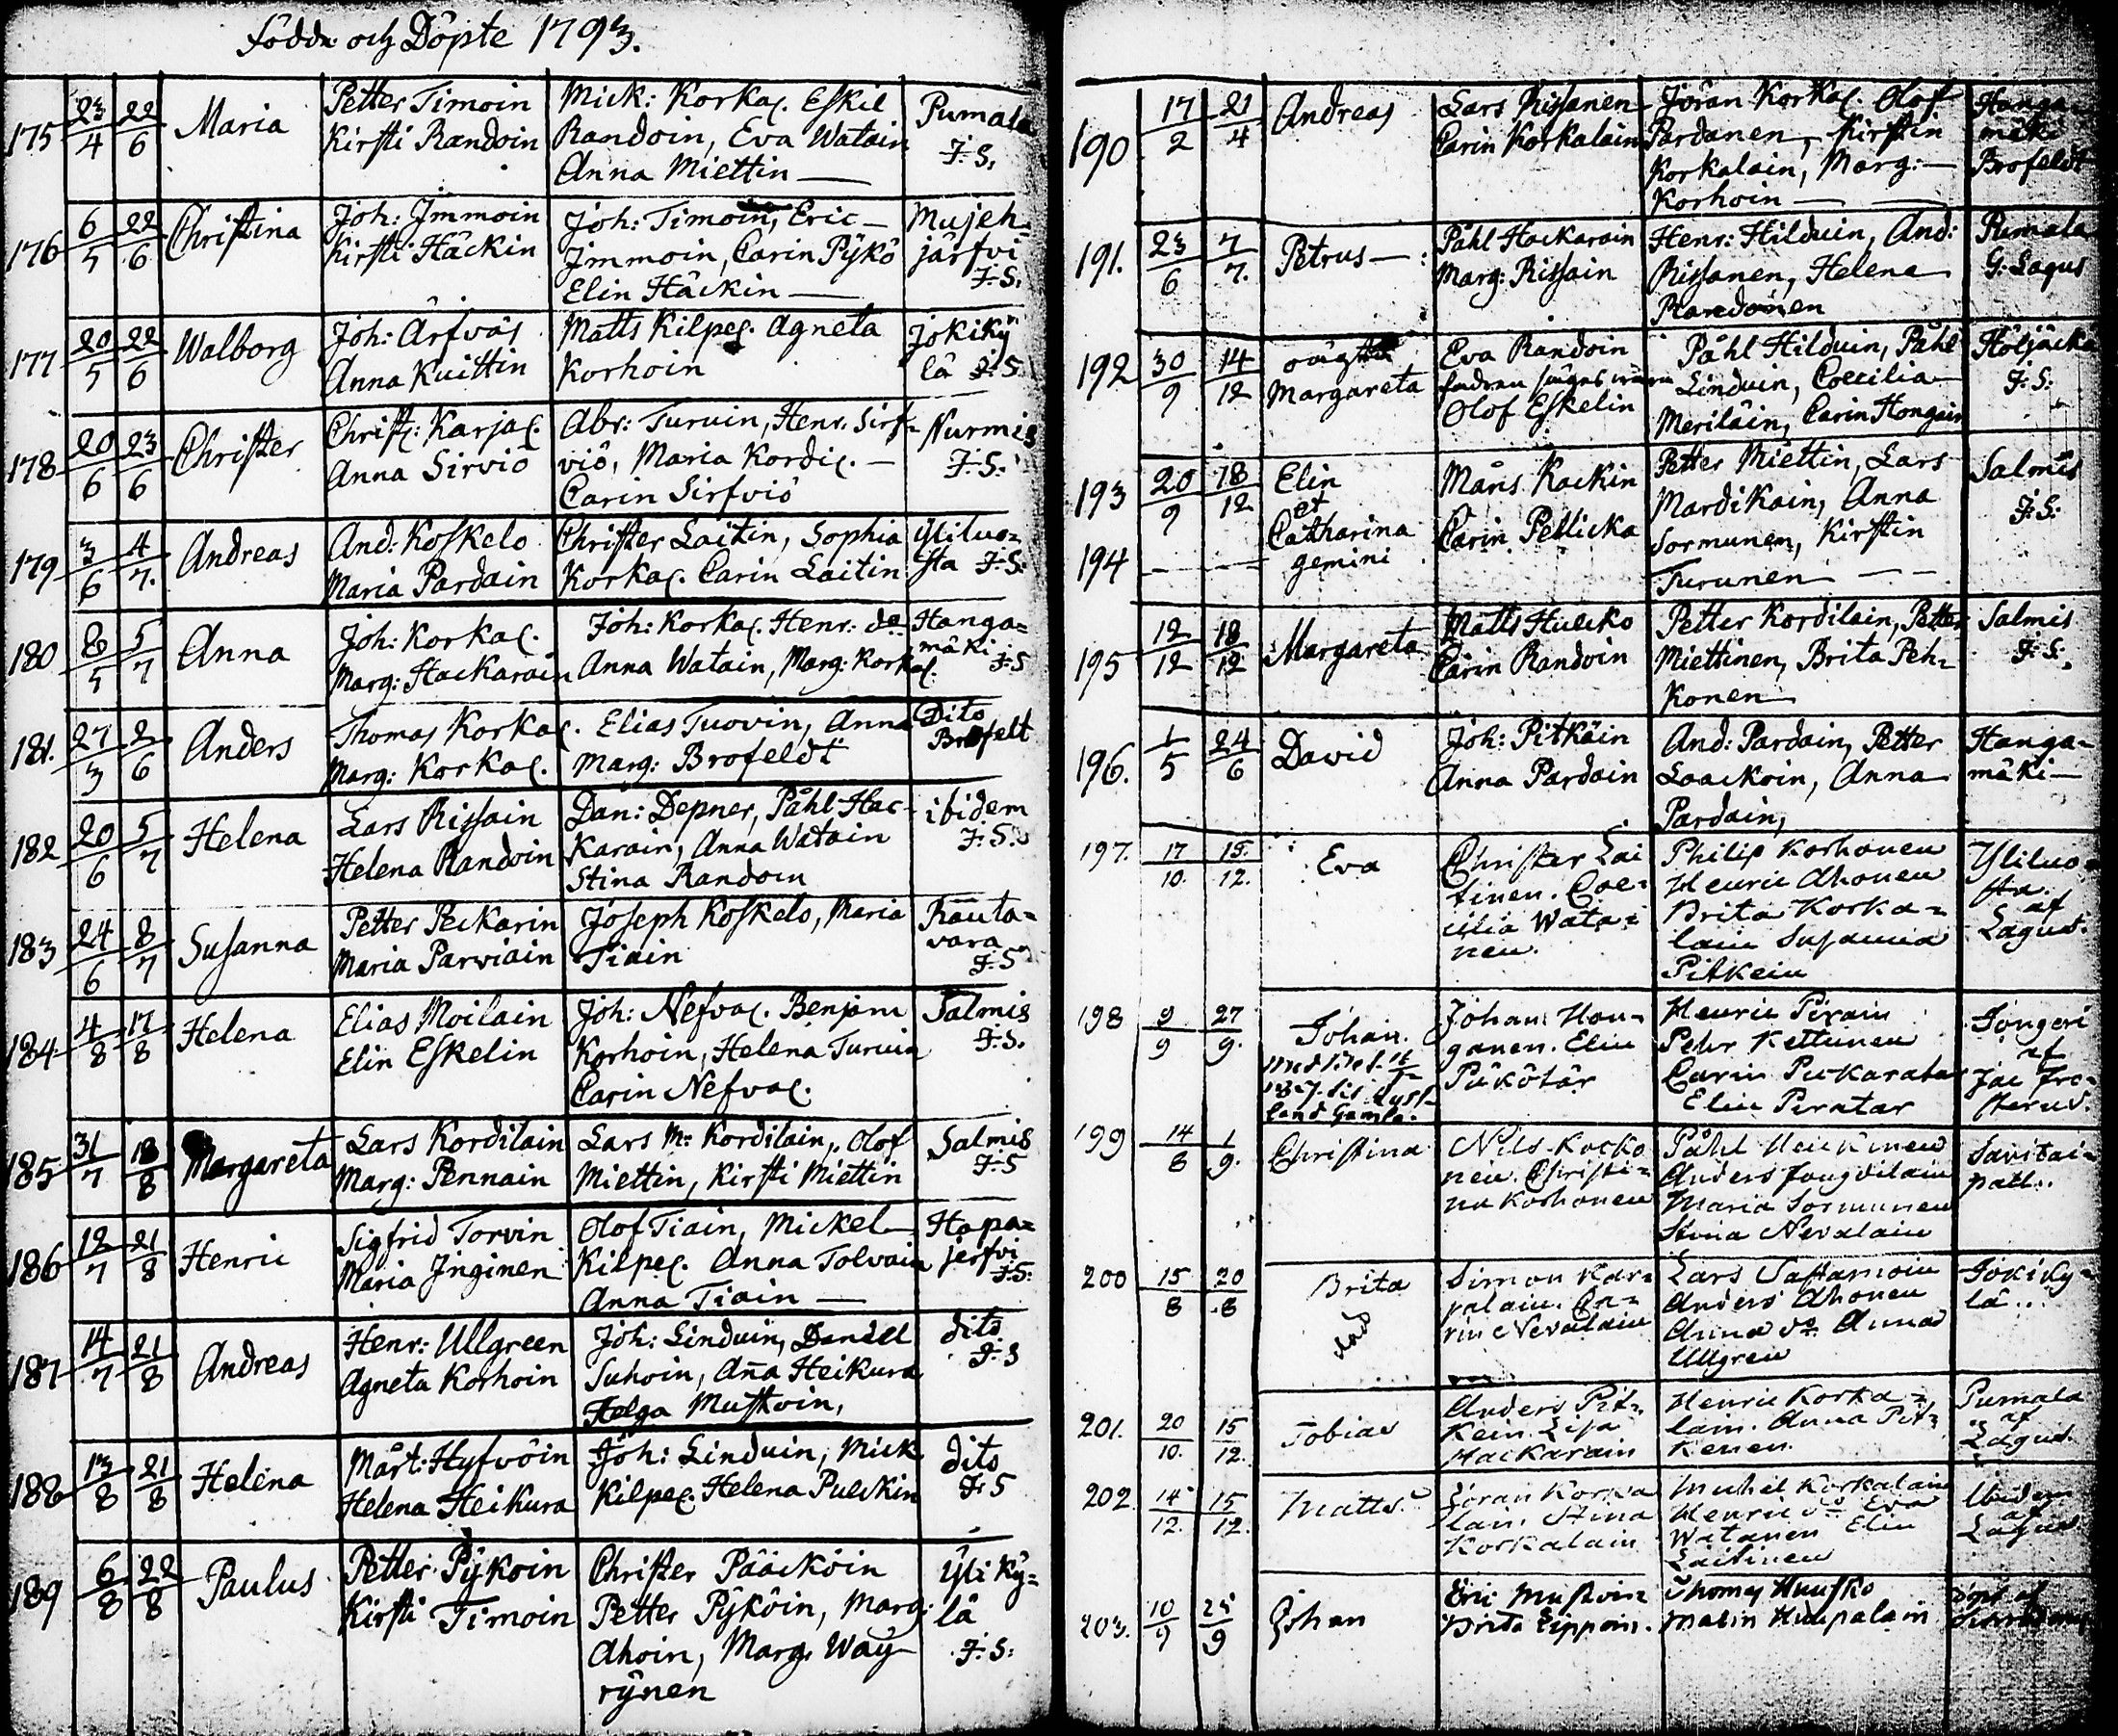 födde och Döpte 1793.
175 23/4 22/6 Maria Petter Timoin Mick: Korkal. Eskil Pumala
Kirsti Randoin Randoin, Eva Watain J:S:
Anna Miettin —
176 6/5 22/6 Christina Joh: Immoin Joh: Timoin, Eric — Mujeh=
Kirsti Häckin Immoin, Carin Pÿkö järfvi
Elin Häckin — J:S:
177 20/5 22/6 Walborg Joh: Arfvas Matts Kilpel. Agneta Jokiký
Anna Kuittin Korhoin lä J:S
178 20/6 23/6 Christer Christ: Karjal. Abr: Turuin, Henr. Sirf= Nurmis
Anna Sirviö viö, Maria Kordil. — J:S:
Carin Sirfviö
179 3/6 4/7. Andreas And: Koskelo Christer Laitin, Sophia Yliluo=
Maria Pardain Korkal. Carin Laitin sta J:S:
180 8/5 5/7 Anna Joh: Korkal. Joh: Korkal. Henr: do Hanga=
Marg: Hackarain Anna Watain, Marg: Korkal. mäki J:S
181. 27/3 2/6 Anders Thomas Korkal. Elias Tuovin, Anna Dito
Marg: Korkal. Marg: Brofeldt Brofelt
182 20/6 5/7 Helena Lars Rissain Dan: Depner, Påhl Hac- ibidem
Helena Randoin Karain, Anna Watain J:S:
Stina Randoin
183 24/6 8/7 Susanna Petter Peckarin Joseph Koskelo, Maria Rauta=
Maria Parviain Tiain vara
J:S
184 4/8 17/8 Helena Elias Moilain Joh: Nefval. Benjam Salmis
Elin Eskelin Korhoin, Helena Turuin J:S.
Carin Nefval.
185 31/7 18/8 Margareta Lars Kordilain Lars M: Kordilain, Olof Salmis
Marg: Pennain Miettin, Kirsti Miettin J:S
186 12/7 21/8 Henric Sigfrid Torvin Olof Tiain, Mickel — Hapa=
Maria Inginen Kilpel. Anna Tolvain jerfvi
Anna Tiain — J:S:
187 14/7 21/8 Andreas Henr: Ullgreen Joh: Linduin, Daniel dito
Agneta Korhoin Suhoin, Aña Heikura J:S
Helga Mustoin,
188 13/8 21/8 Helena Mårt: Hyfvöin Joh: Linduin, Mick dito
Helena Heikura Kilpel. Helena Pulckin J:S
189 6/8 22/8 Paulus Petter Pÿkoin Christer Pääcköin Ÿli Kÿ=
Kirsti Timoin Petter Pÿköin, Marg: lä
Ahoin, Marg. Way J:S:
rÿnen
190 17/2 21/4 Andreas Lars Rissanen Jöran Korkal. Olof Hanga=
Carin Korkalain Pardanen, Kirstin mäki
Korkalain, Marg: — Brofeldt
Korhoin —
191. 23/6 7/7. Petrus — Påhl Hackarain Henr: Hilduin, And: Pumala
Marg: Rissain Rissanen, Helena G. Lagus
Randonen
192 30/9 14/12 oägta Eva Randoin Påhl Hilduin, Påhl Höljäckä
Margareta fadren säges wara Linduin, Coecilia J:S:
Olof Eskelin Meriläin, Carin Hongain
193 20/9 18/12 Elin Måns Kackin Petter Miettin, Lars Salmis
et Mardikain, Anna J:S:
Catharina Carin Pellicka Sormunen, Kirstin
194 — — gemini Turunen —
195 12/12 18/12 Margareta Matts Hucko Petter Kordilain, Petter Salmis
Carin Randoin Miettinen, Brita Peh= J:S:
konen —
196. 1/5 24/6 David Joh: Pitkäin And: Pardain, Petter Hanga=
Anna Pardain Laackoin, Anna mäki —
Pardain,
197. 17/10. 15./12. Eva Christer Lai Philip Korhonen Yliluo=
tinen. Coe= Henric Ahonen sta.
cilia Wata= Brita Korka= af
nen. lain Susanna Lagus.
Pitkein
198 9/9 27/9. Johan. Johan Hon= Henric Pirain
ganen. Elin Pehr Kettunen af
Pukötär Carin Puckaratar
land Gamla. Elin Piratar
199 14/8 1/9. Christina Nils Kocko Påhl Heickinen Savitai=
nen. Christi= Anders pall..
na Korhonen Maria Sormunen
Stina Nevalain
200 15/8 20/8 Brita Simon Kar= Lars Jokiky=
jalain. Ca= Anders Ahonen lä...
död rin Nevalain Anna do. Anna
Ullgren
201. 20/10. 15/12. Tobias Anders Pit= Henric Korka= Pumala
kein. Lisa lain. Anna Pit= af
Hackarain kenen. Lagus.
202 14/12. 15/12. Matts. Jöran Korka Michel Korkalain Ibidem
lain. Stina Henric do Eva af
Korkalain Watanen Elin Lagus
Laitinen
203. 10/9 25/9 Johan Eric Mustoin= Thomas Huusko döpt af
Brita Lippoin. Malin Huupalain